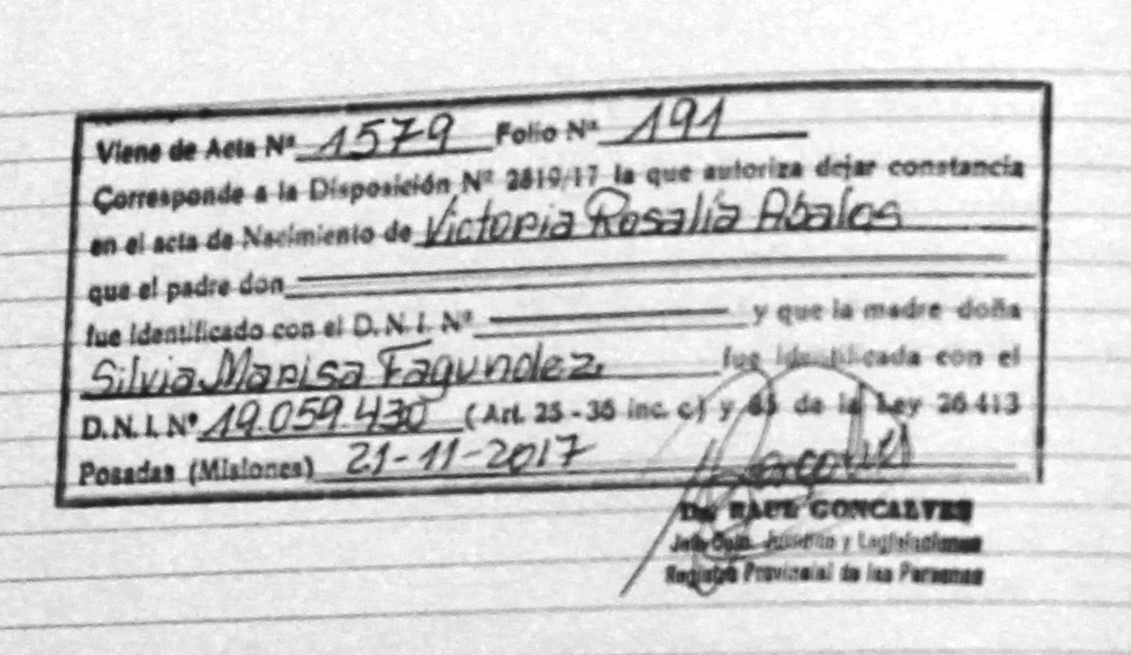 Viene de Acta Nº 1579 Folio Nº 191
Corresponde a la Disposición Nº 2819/17 la que autoriza dejar constancia
en el acta de Nacimiento de Victoria Rosalía Abalos
que el padre don
fue identificado con el D.N.I. Nº y que la madre doña
Silvia Marisa Fagundez, fue identificada con el
D.N.I. Nº 19.059.430 (Art. 25 - 36 inc. c) y 85 de la Ley 26413
Posadas (Misiones) 21-11-2017
Dr. RAUL GONCALVES
Jefe Dpto. Jurídico y Legislaciones
Registro Provincial de las Personas